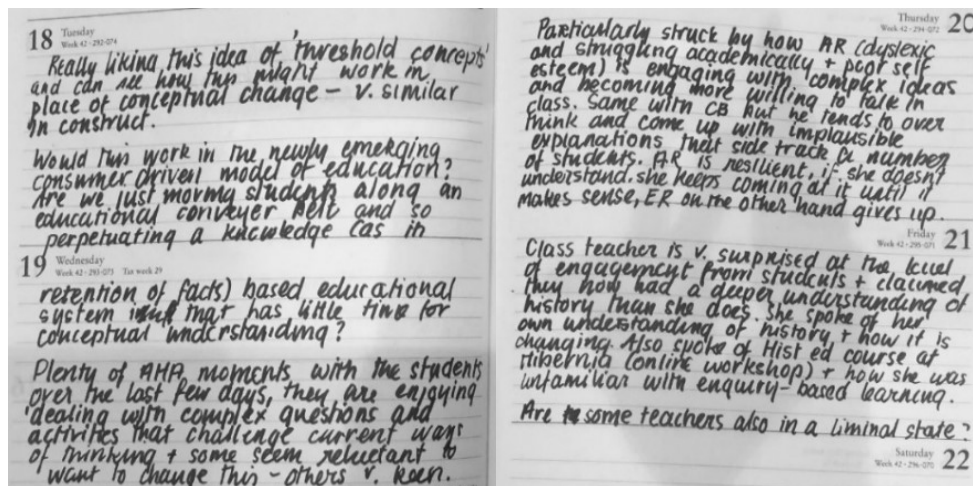 18 Tuesday
Week 42 · 292-074
Really liking this idea of 'threshold concepts'
and can see how this might work in
place of conceptual change – v. similar
in construct.
Would this work in the newly emerging
consumer driven model of education?
Are we just moving students along an
educational conveyer belt and so
perpetuating a knowledge (as in
19 Wednesday
Week 42 · 293-073 Tax week 29
retention of facts) based educational
system that has little time for
conceptual understanding?
Plenty of AHA moments with the students
over the last few days, they are enjoying
dealing with complex questions and
activities that challenge current ways
of thinking + some seem reluctant to
want to change this – others v. keen.
Thursday 20
Week 42 · 294-072
Particularly struck by how AR (dyslexic
and struggling academically + poor self
esteem) is engaging with complex ideas
and becoming more willing to talk in
class. Same with CB but he tends to over
think and come up with implausible
explanations that side track a number
of students. AR is resilient, if she doesn't
understand. she keeps coming at it until it
makes sense, ER on the other hand gives up.
Friday 21
Week 42 · 295-071
Class teacher is v. surprised at the level
of engagement from students + claimed
they now had a deeper understanding of
history than she does. She spoke of her
own understanding of history + how it is
changing. Also spoke of Hist ed course at
Hibernia (online workshop) + how she was
unfamiliar with enquiry-based learning.
Are some teachers also in a liminal state?
Saturday 22
Week 42 · 296-070